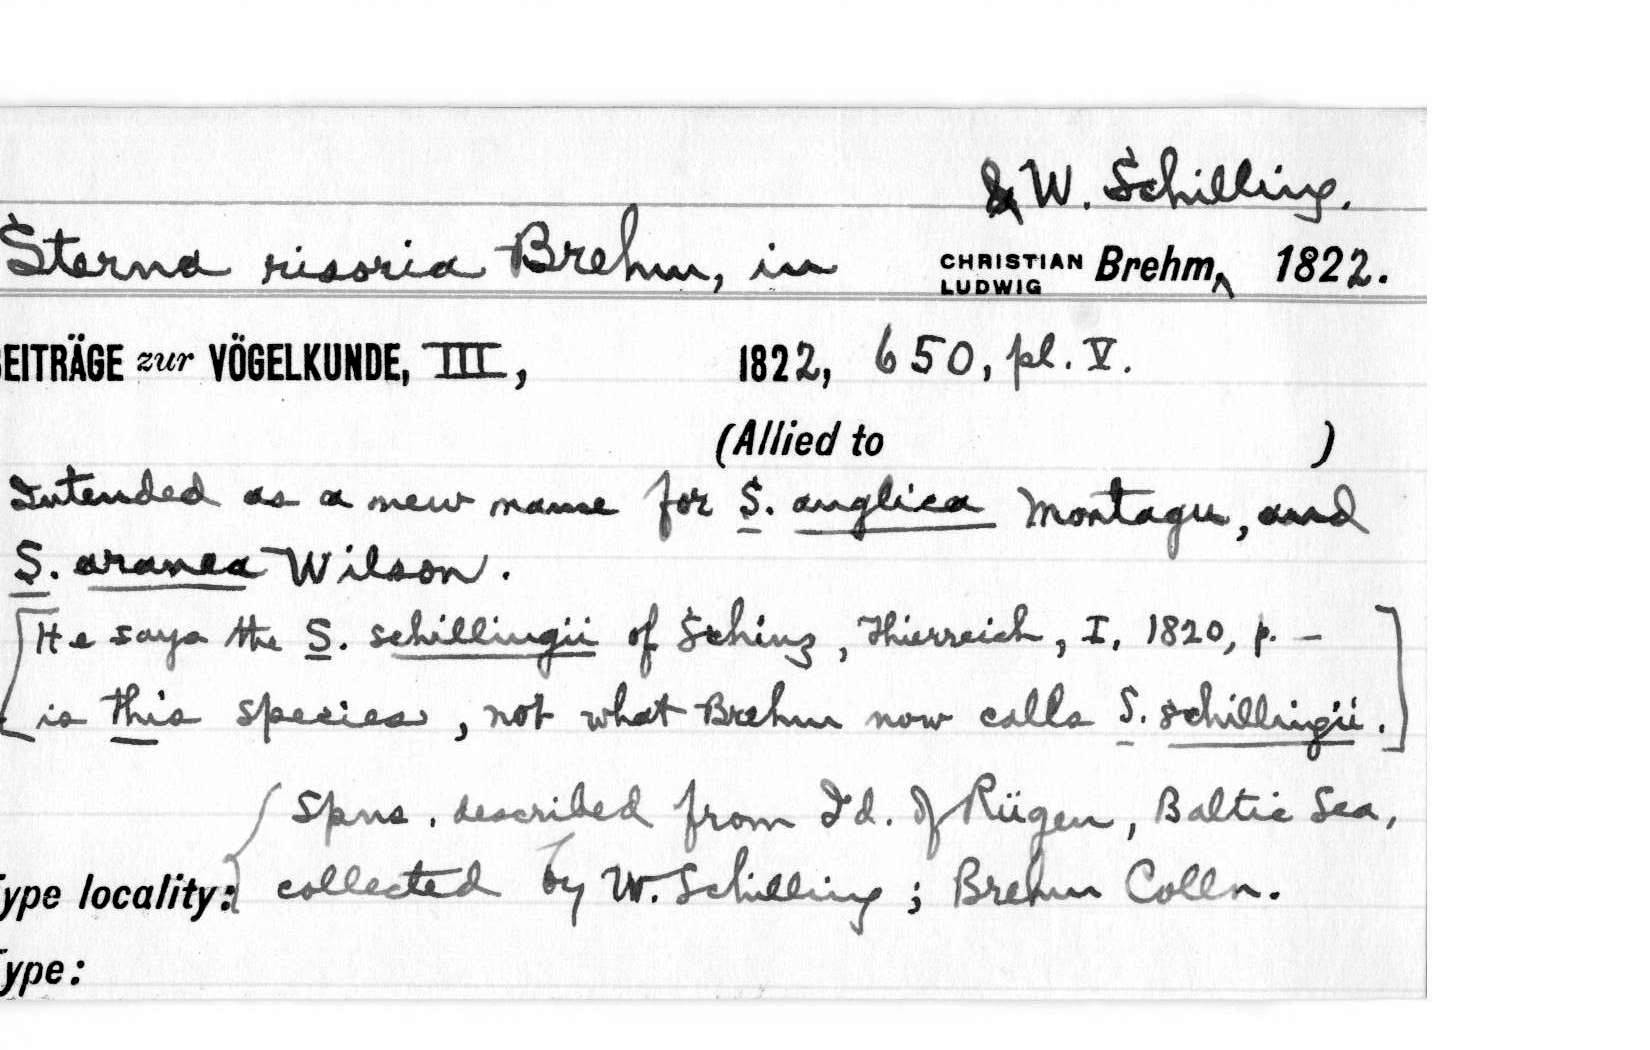 & W. Schilling.
Sterna risoria Brehm, in CHRISTIAN LUDWIG Brehm, ^ 1822.
EITRÄGE zur VÖGELKUNDE, III, 1822, 650, pl. V.
(Allied to )
Intended as a new name for S. anglica Montagu, and
S. aranea Wilson.
[He says the S. schillingii of Schinz, Thierreich, I, 1820, p. –
is this species, not what Brehm now calls S. schillingii.]
Spns. described from Id. of Rügen, Baltic Sea,
ype locality: collected by W. Schilling; Brehm Colln.
ype: